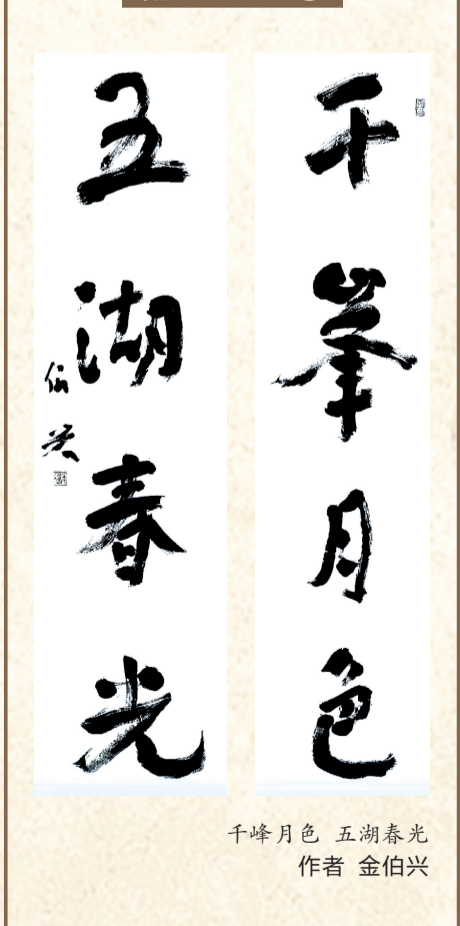 千峯月色
五湖春光
伯兴
千峰月色 五湖春光
作者 金伯兴